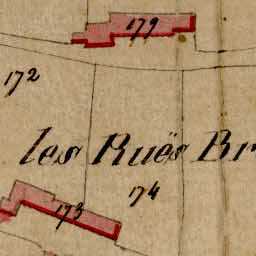 179
172
les Ruës Br
174
173